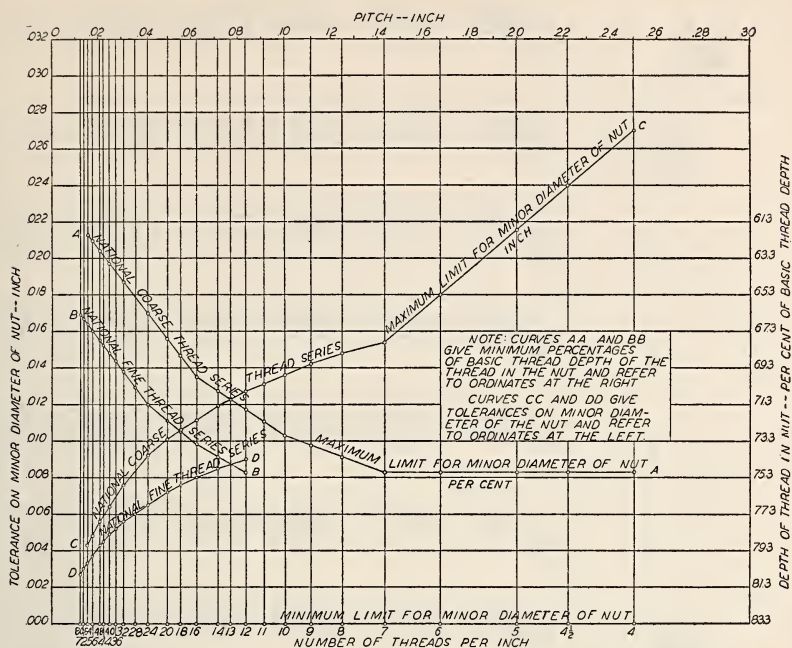 PITCH--INCH
0 .02 .04 .06 .08 .10 .12 .14 .16 .18 .20 .22 .24 .26 .28 .30
.032
.030
.028
.026
.024
.022
.020
.018
.016
.014
.012
.010
.008
.006
.004
.002
.000
TOLERANCE ON MINOR DIAMETER OF NUT--INCH
61.3
63.3
65.3
67.3
69.3
71.3
73.3
75.3
77.3
79.3
81.3
83.3
DEPTH OF THREAD IN NUT--PER CENT OF BASIC THREAD DEPTH
A NATIONAL COARSE THREAD SERIES
MAXIMUM LIMIT FOR MINOR DIAMETER OF NUT A
PER CENT
B NATIONAL FINE THREAD SERIES B
C NATIONAL COARSE THREAD SERIES
MAXIMUM LIMIT FOR MINOR DIAMETER OF NUT C
INCH
D NATIONAL FINE THREAD SERIES D
NOTE: CURVES AA AND BB
GIVE MINIMUM PERCENTAGES
OF BASIC THREAD DEPTH OF THE
THREAD IN THE NUT AND REFER
TO ORDINATES AT THE RIGHT
CURVES CC AND DD GIVE
TOLERANCES ON MINOR DIAM-
ETER OF THE NUT AND REFER
TO ORDINATES AT THE LEFT.
MINIMUM LIMIT FOR MINOR DIAMETER OF NUT
28 24 20 18 16 14 13 12 11 10 9 8 7 6 5 4½ 4
NUMBER OF THREADS PER INCH